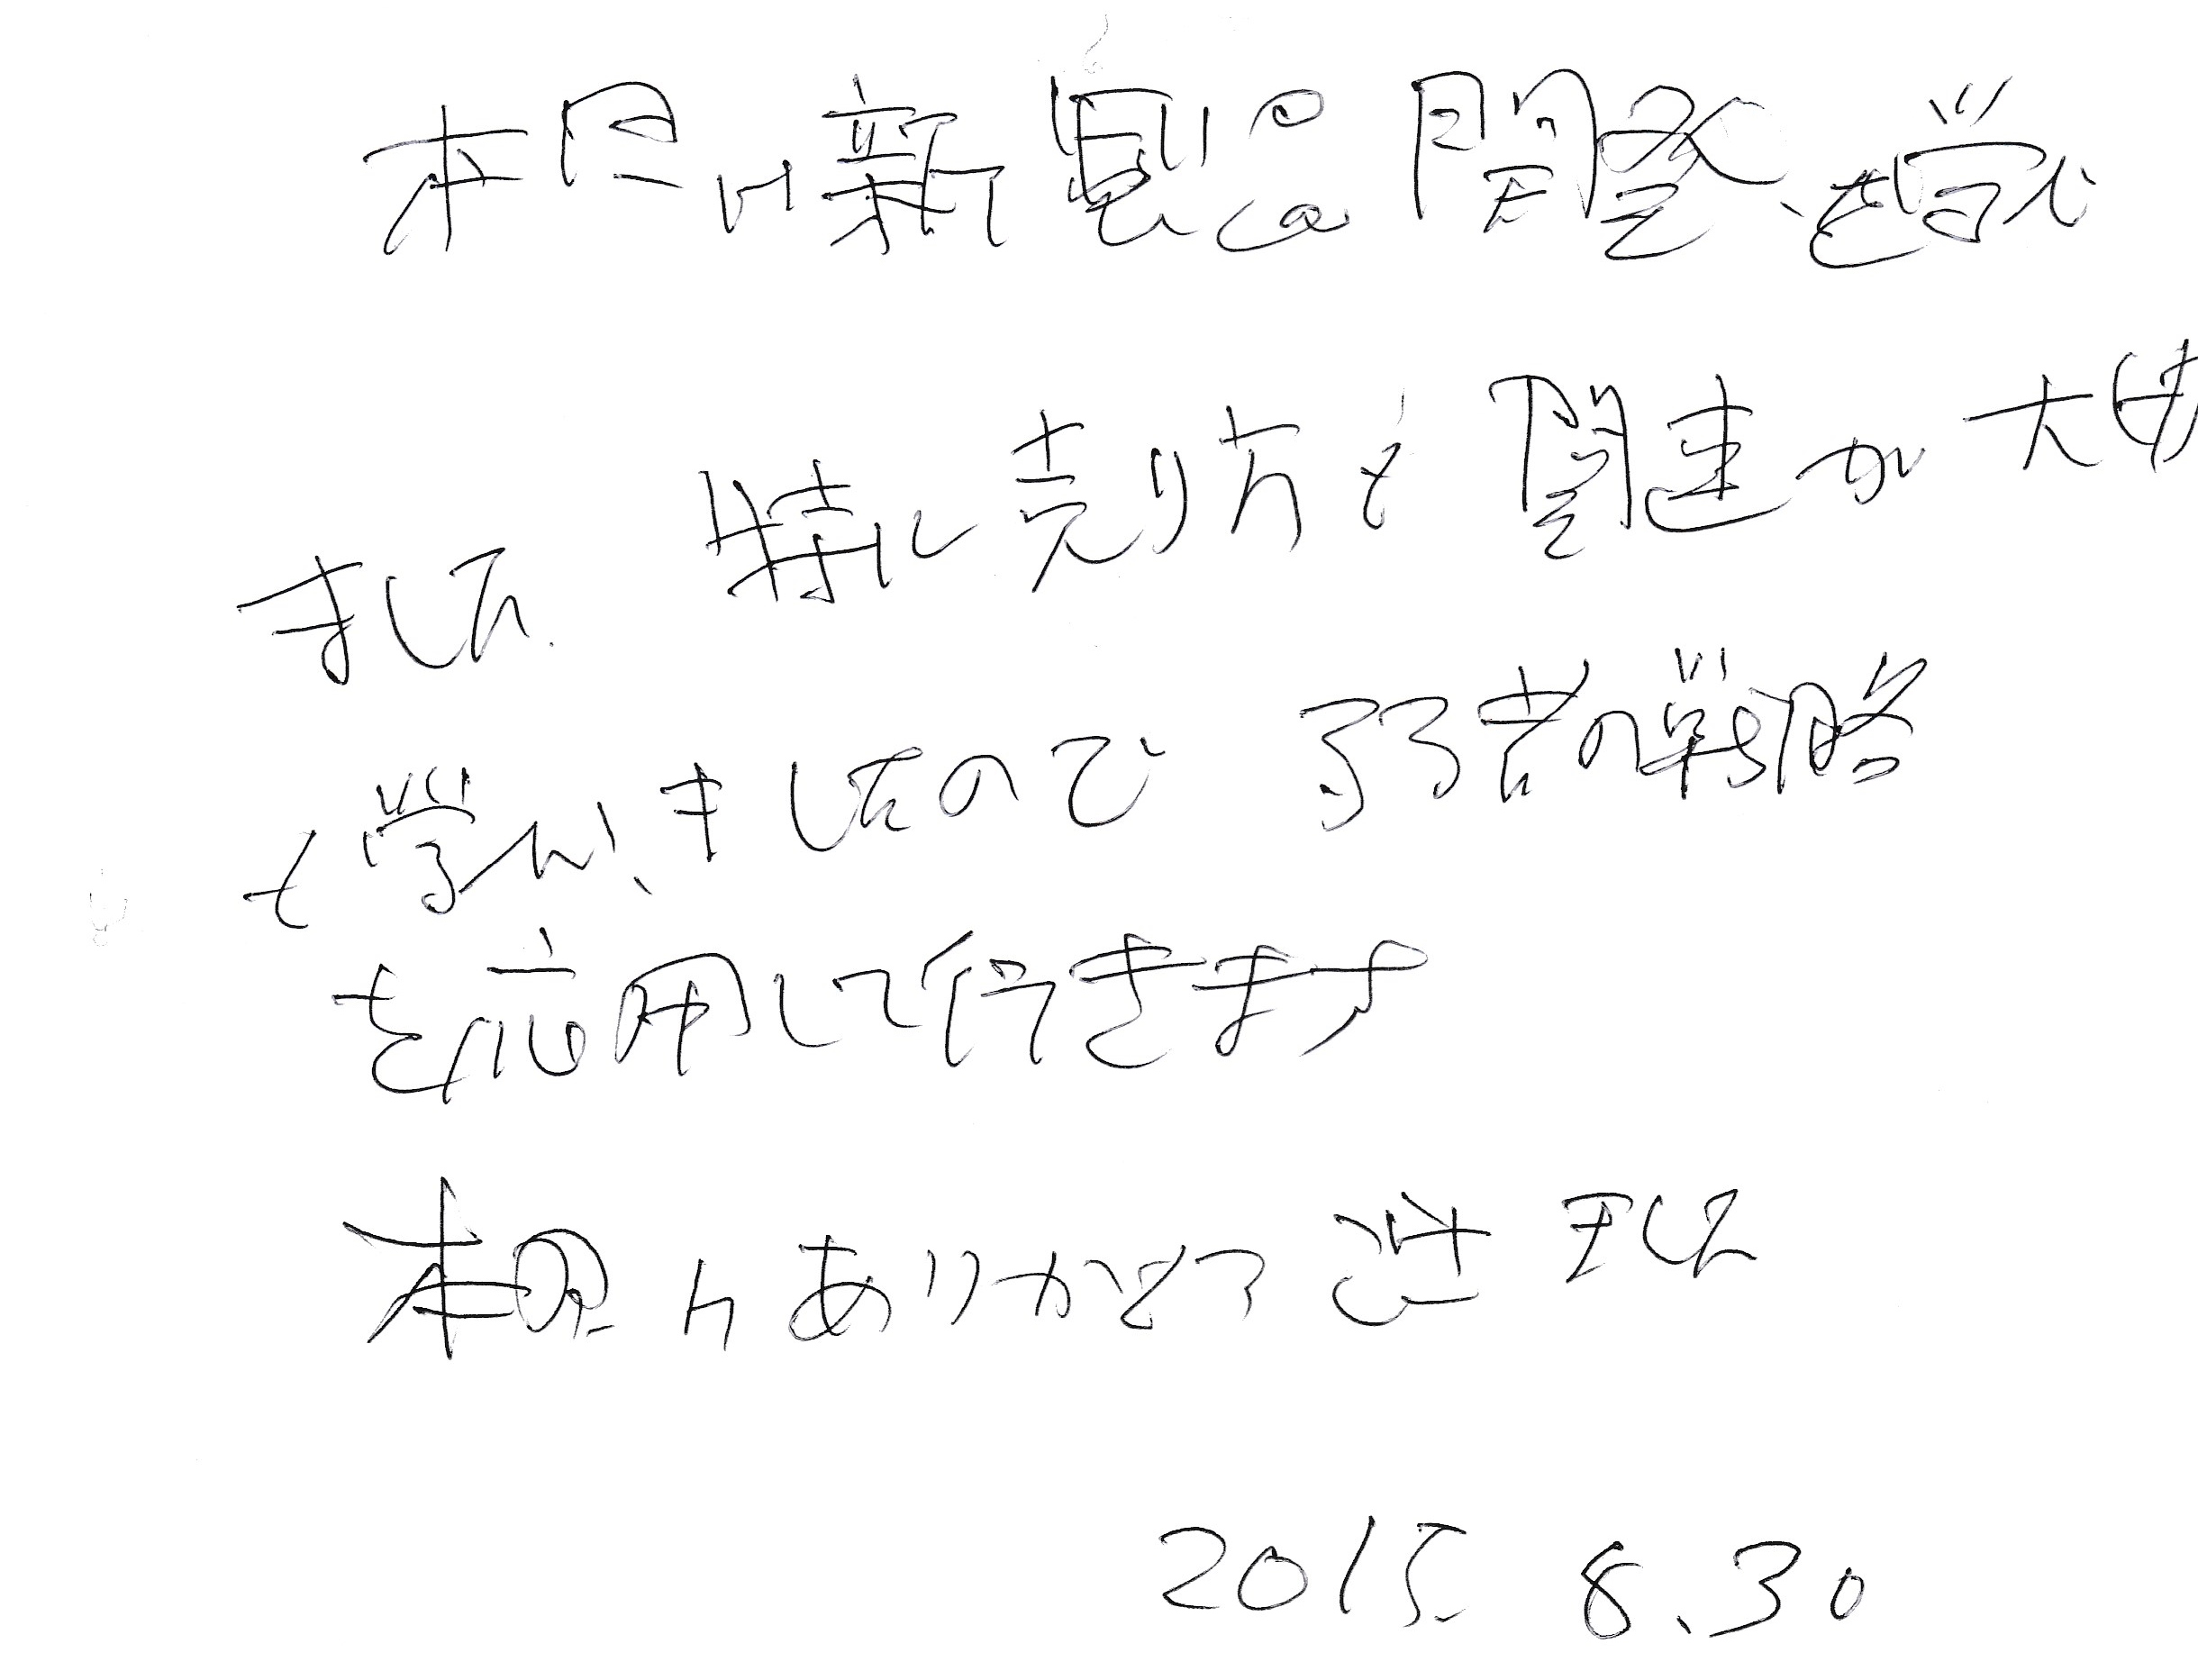 本日は新製品開発を学び
ました 特に売り方と関連が大切
と学びましたので 弱者の戦略
を応用して行きます
本日はありがとう送ました
2015.8.30